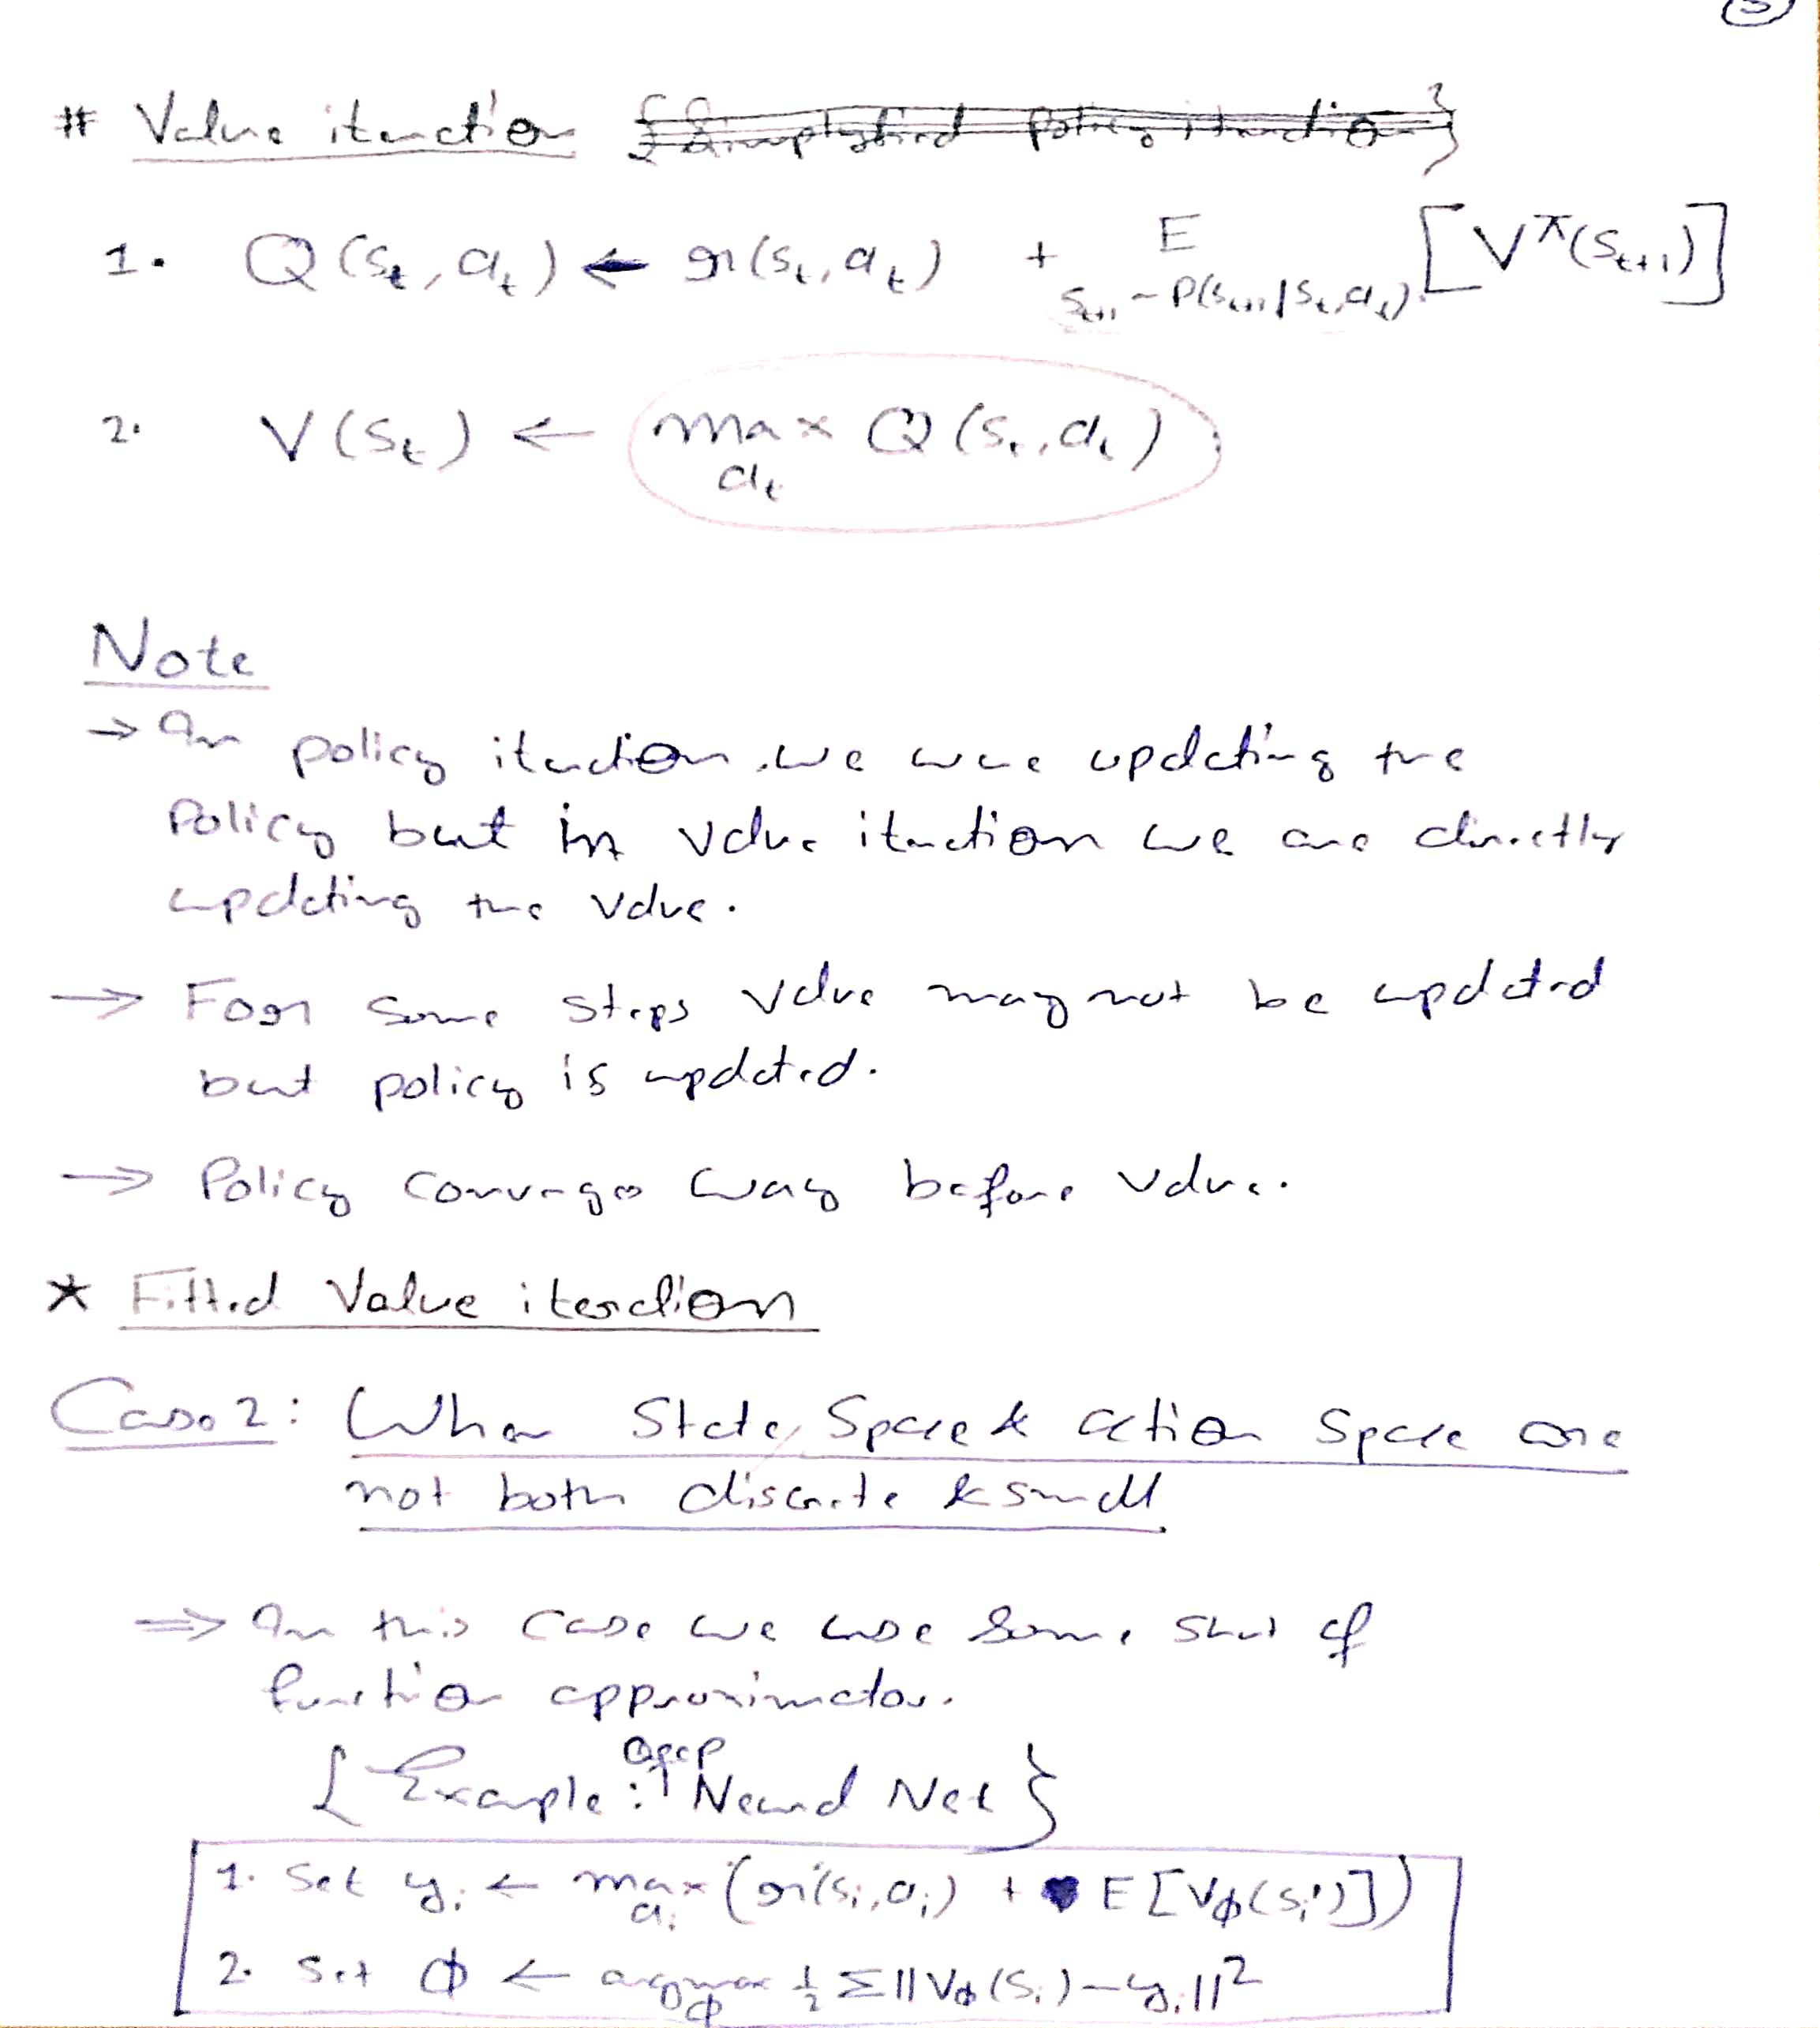 ③
# Value iteration {Simplified policy iteration}
1. Q(s_t, a_t) ← r(s_t, a_t) + E_{s_{t+1} ~ P(s_{t+1}|s_t, a_t)} [V^π(s_{t+1})]
2. V(s_t) ← max_{a_t} Q(s_t, a_t)
Note
→ In policy iteration, we were updating the
Policy but in value iteration we are directly
updating the value.
→ For some steps value may not be updated
but policy is updated.
→ Policy converges way before value.
* Fitted Value iteration
Case 2: When State Space & action Space are
not both discrete & small
⇒ In this case we use some sort of
function approximator.
{Example: Deep Neural Net}
1. Set y_i ← max_{a_i} (r(s_i, a_i) + E[V_ϕ(s_i')])
2. Set ϕ ← argmax_ϕ ½ Σ||V_ϕ(s_i) - y_i||²